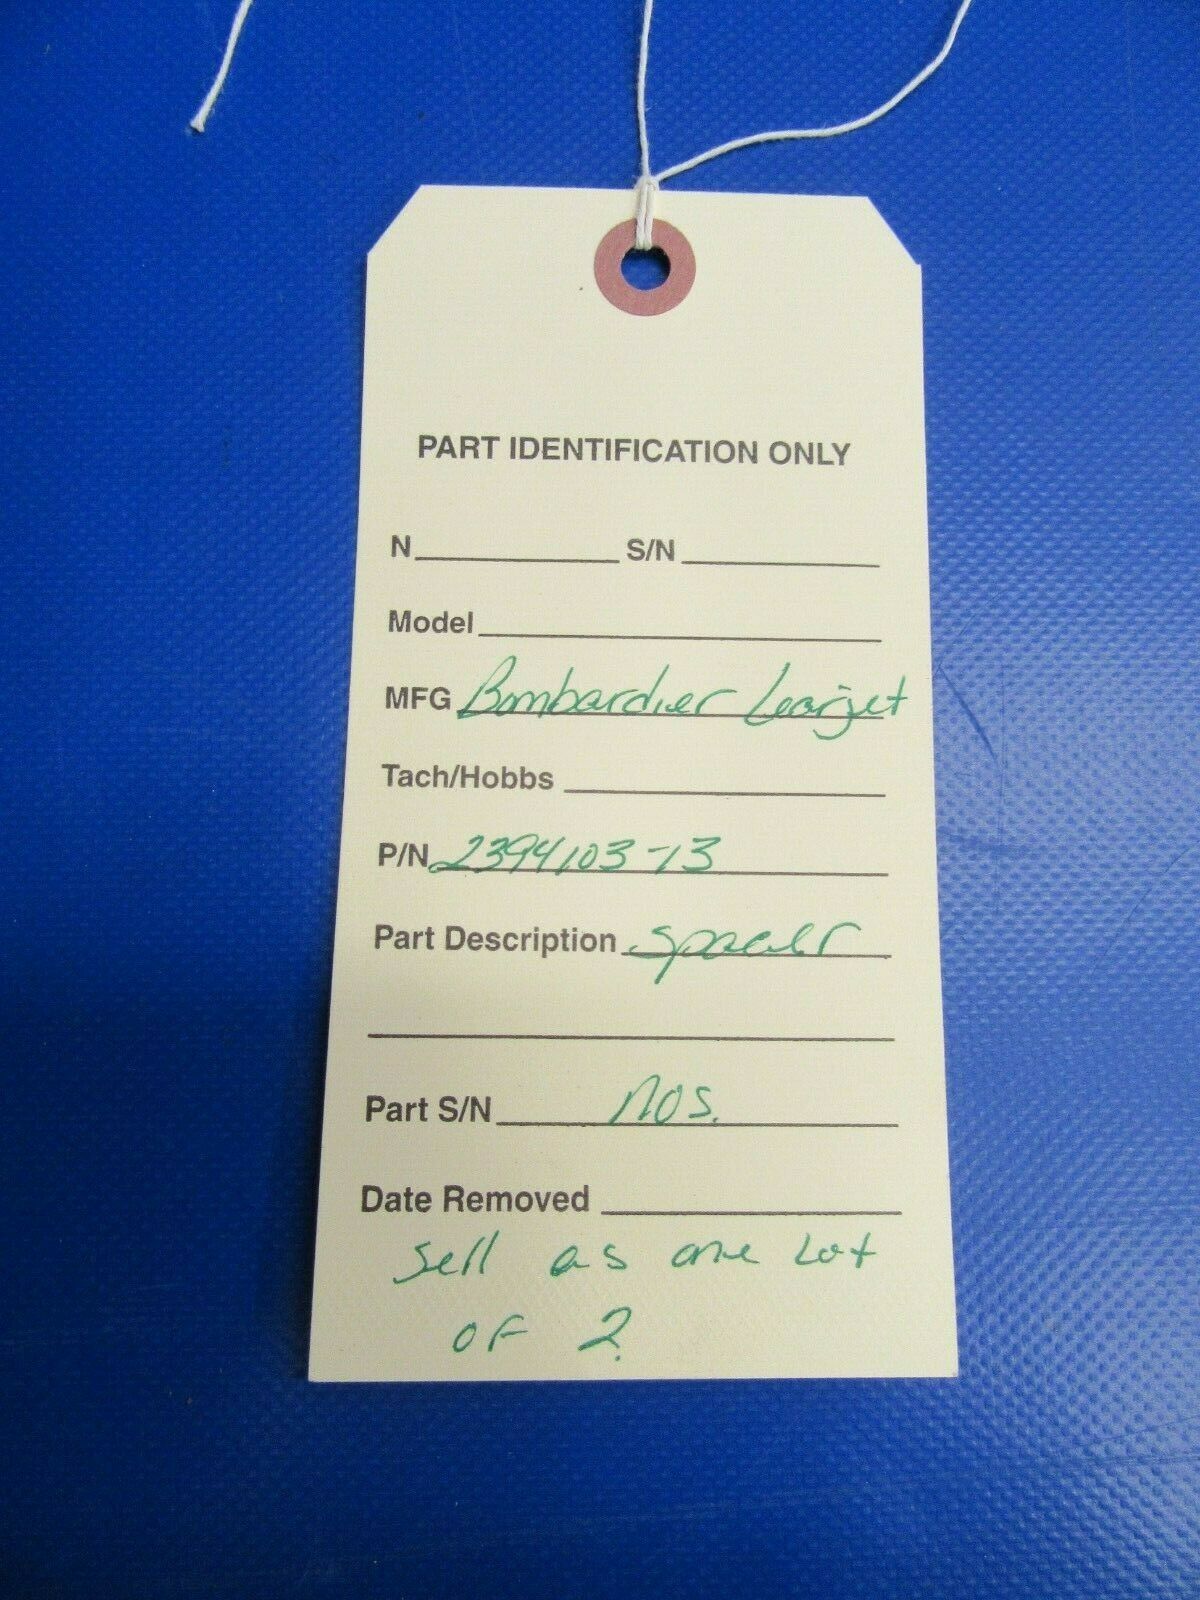 PART IDENTIFICATION ONLY
N S/N
Model
MFG Bombardier Learjet
Tach/Hobbs
P/N 2394103-13
Part Description Spacer
Part S/N NOS.
Date Removed
Sell as one Lot
of 2.